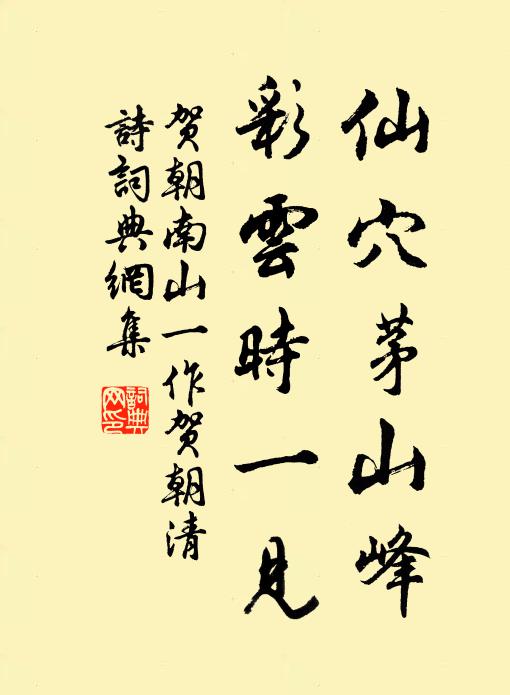 仙穴茅山峰
彩雲時一見
贺朝南山一作贺朝清
詩詞典網集
詞典网印